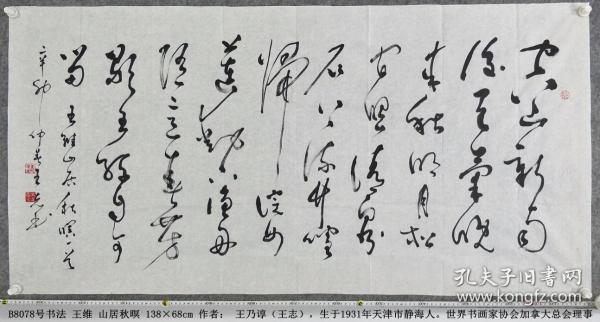 空山新雨
後天氣晚
来秋明月松
间照清泉
石上流竹喧
歸浣女
蓮動下漁舟
随意春芳
歇王孫自可
留 王維山居秋暝一首
辛卯仲春王志书
孔夫子旧书网
www.kongfz.com
B8078号书法 王维 山居秋暝 138×68cm 作者： 王乃谆（王志），生于1931年天津市静海人。世界书画家协会加拿大总会理事